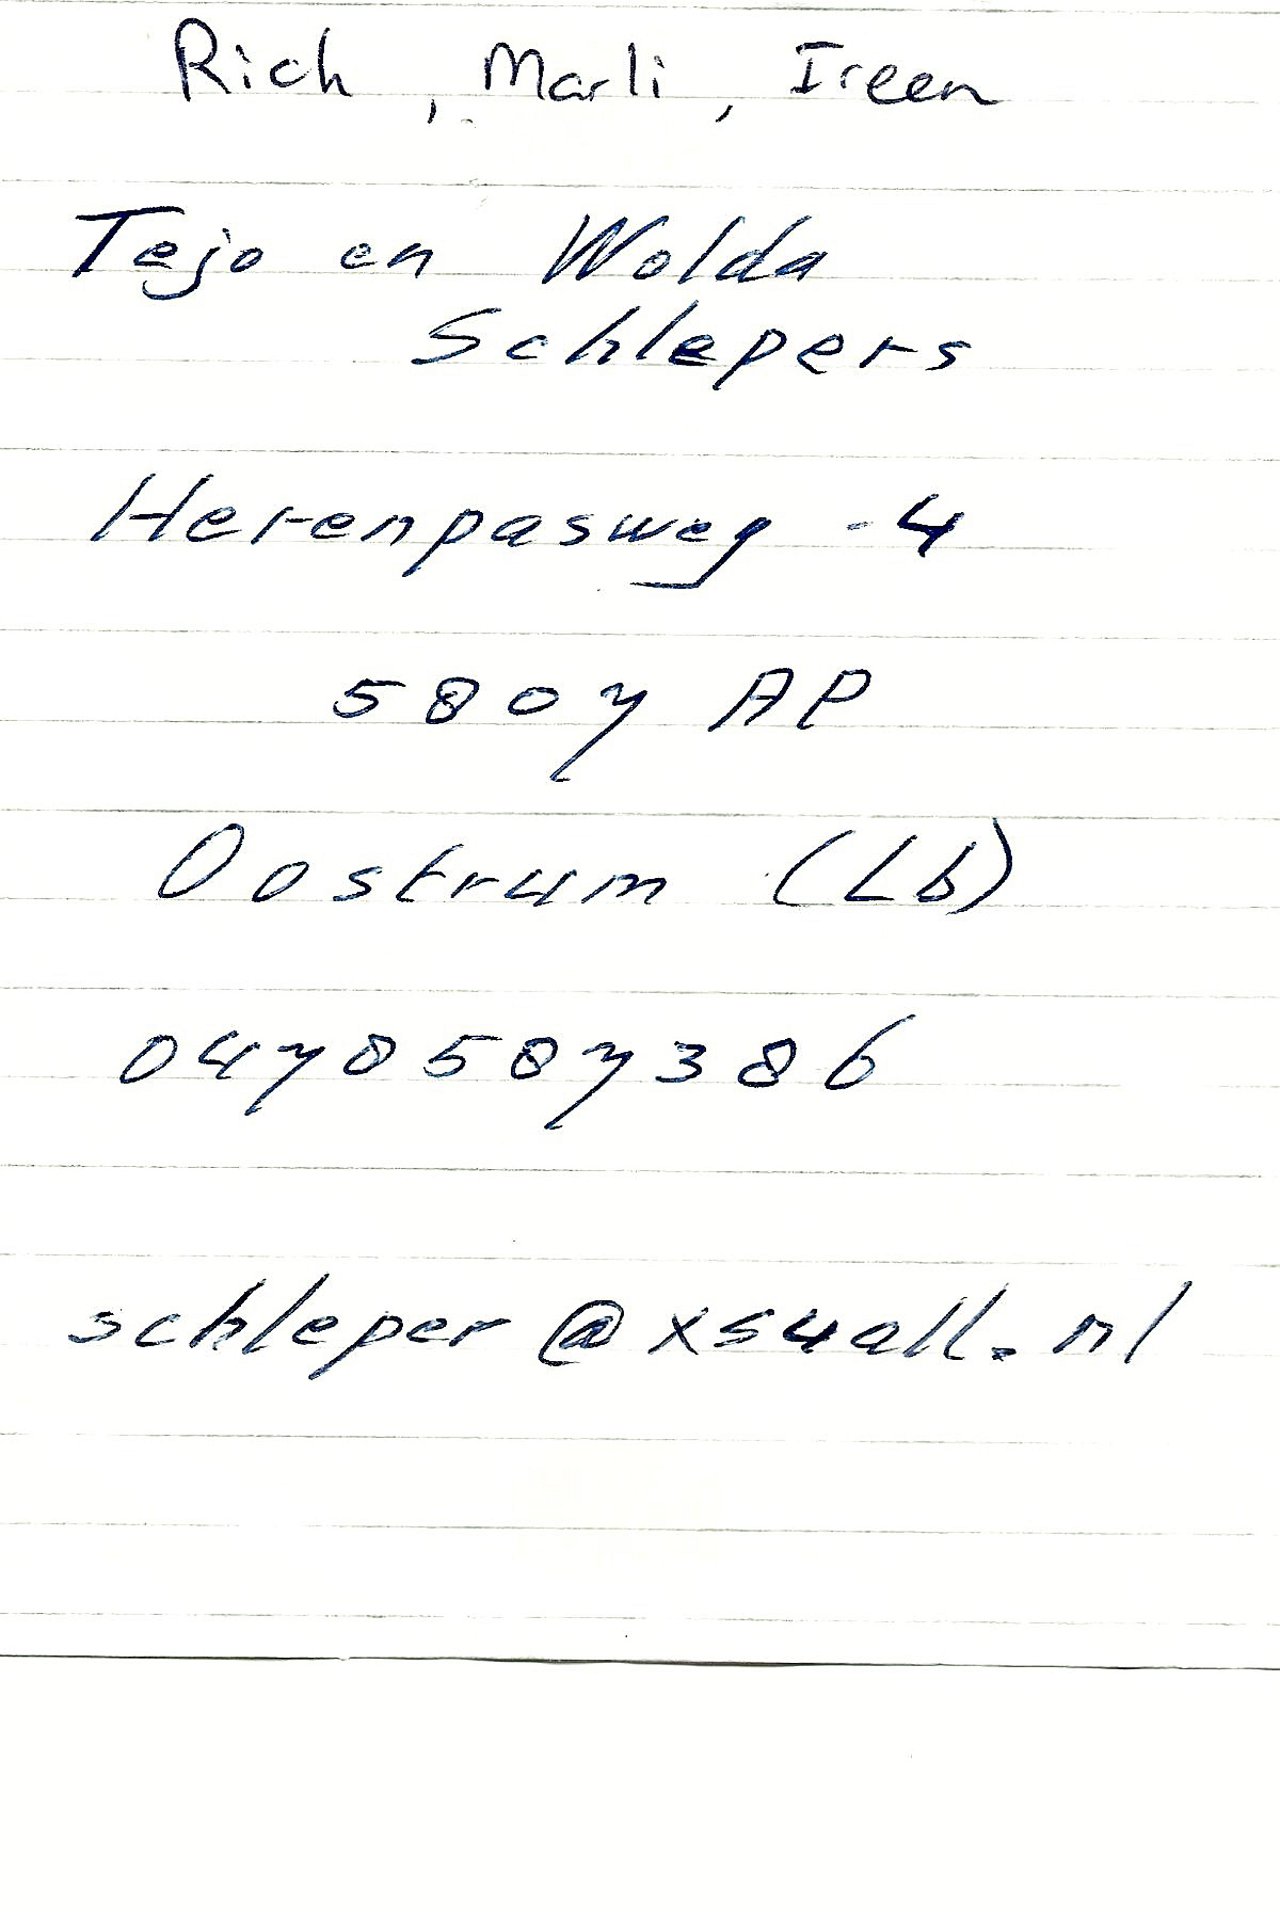 Rich, Marli, Ireen
Tejo en Wolda
Schlepers
Herenpasweg -4
5807 AP
Oostrum (Lb)
0478587386
schleper@xs4all.nl